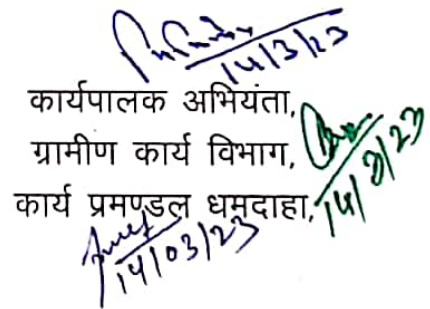 14/3/23
कार्यपालक अभियंता,
ग्रामीण कार्य विभाग,
कार्य प्रमण्डल धमदाहा,
14/3/23
14/03/23